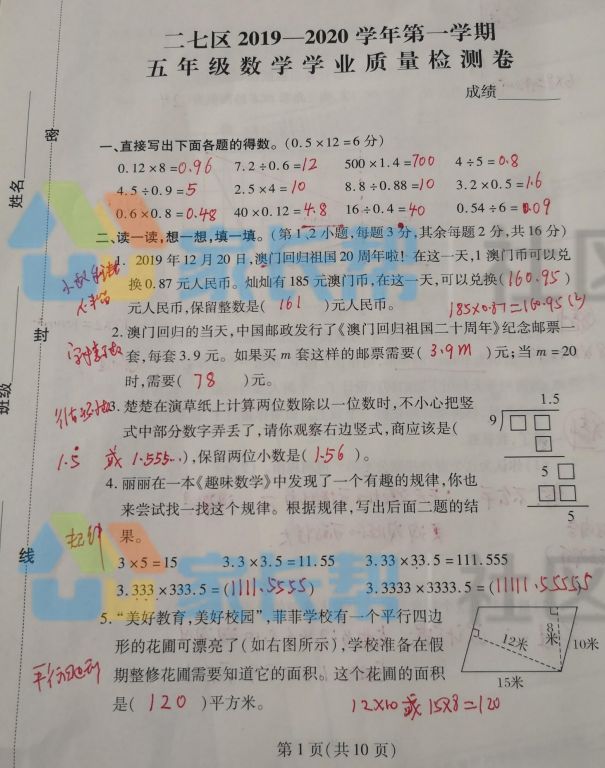 二七区2019—2020学年第一学期
五年级数学学业质量检测卷
成绩
密
姓名
一、直接写出下面各题的得数。(0.5×12=6分)
0.12×8=0.96 7.2÷0.6=12 500×1.4=700 4÷5=0.8
4.5÷0.9=5 2.5×4=10 8.8÷0.88=10 3.2×0.5=1.6
0.6×0.8=0.48 40×0.12=4.8 16÷0.4=40 0.54÷6=0.09
二、读一读,想一想,填一填。(第1、2小题,每题3分,其余每题2分,共16分)
1. 2019年12月20日,澳门回归祖国20周年啦!在这一天,1澳门币可以兑
换0.87元人民币。灿灿有185元澳门币,在这一天,可以兑换(160.95)
元人民币,保留整数是(161)元人民币。
185×0.87=160.95(元)
封
2. 澳门回归的当天,中国邮政发行了《澳门回归祖国二十周年》纪念邮票一
套,每套3.9元。如果买m套这样的邮票需要(3.9m)元;当m=20
时,需要(78)元。
班级
3. 楚楚在演草纸上计算两位数除以一位数时,不小心把竖
式中部分数字弄丢了,请你观察右边竖式,商应该是(
1.5 或 1.555…),保留两位小数是(1.56)。
1.5
9
5
5
4. 丽丽在一本《趣味数学》中发现了一个有趣的规律,你也
来尝试找一找这个规律。根据规律,写出后面二题的结
果。
找规律
线
3×5=15 3.3×3.5=11.55 3.33×33.5=111.555
3.333×333.5=(1111.5555) 3.3333×3333.5=(11111.55555
5. “美好教育,美好校园”,菲菲学校有一个平行四边
形的花圃可漂亮了(如右图所示),学校准备在假
期整修花圃需要知道它的面积。这个花圃的面积
是(120)平方米。
12×10 或 15×8=120
12米
8米
10米
15米
第1页(共10页)